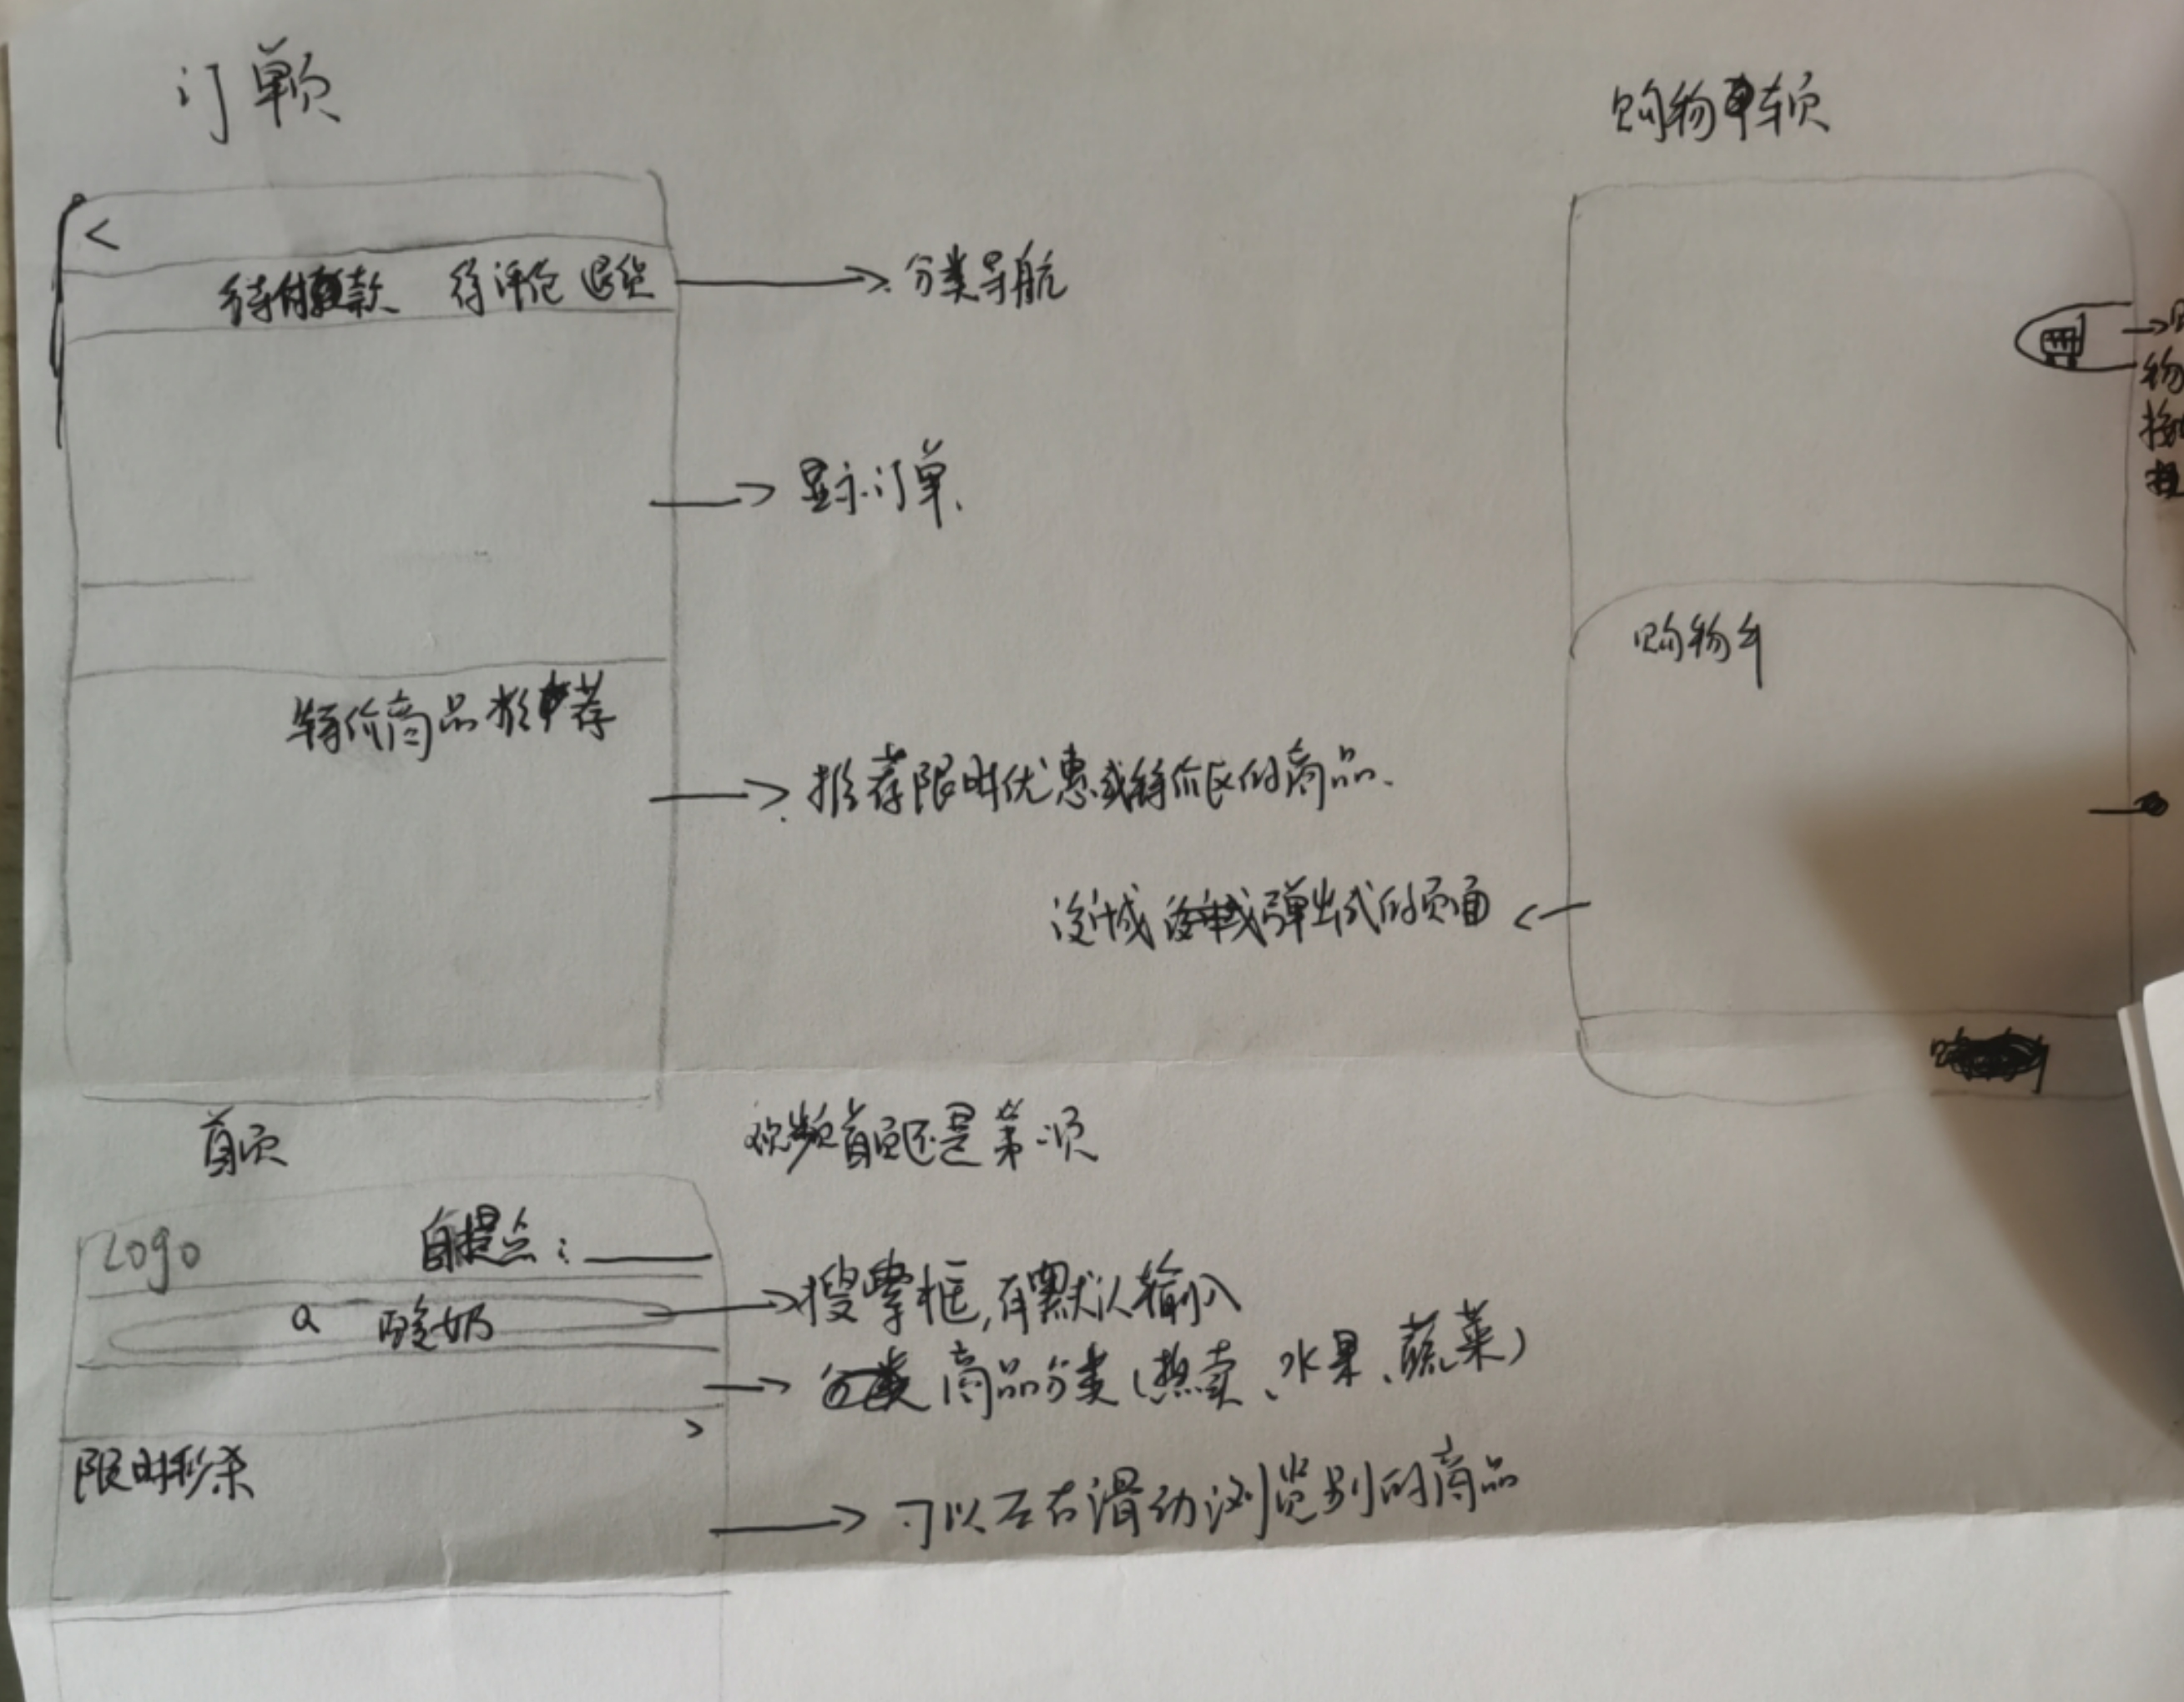 订单页
购物车页
<
待付款 待评价 退货
分类导航
物
显示订单.
购物车
特价商品推荐
推荐限时优惠或特价区的商品.
设计成弹出式的页面
首页
首页还是第一页
Logo
自提点：
搜索框,有默认输入
Q 酸奶
商品分类(热卖、水果、蔬菜)
>
限时秒杀
可以左右滑动浏览别的商品